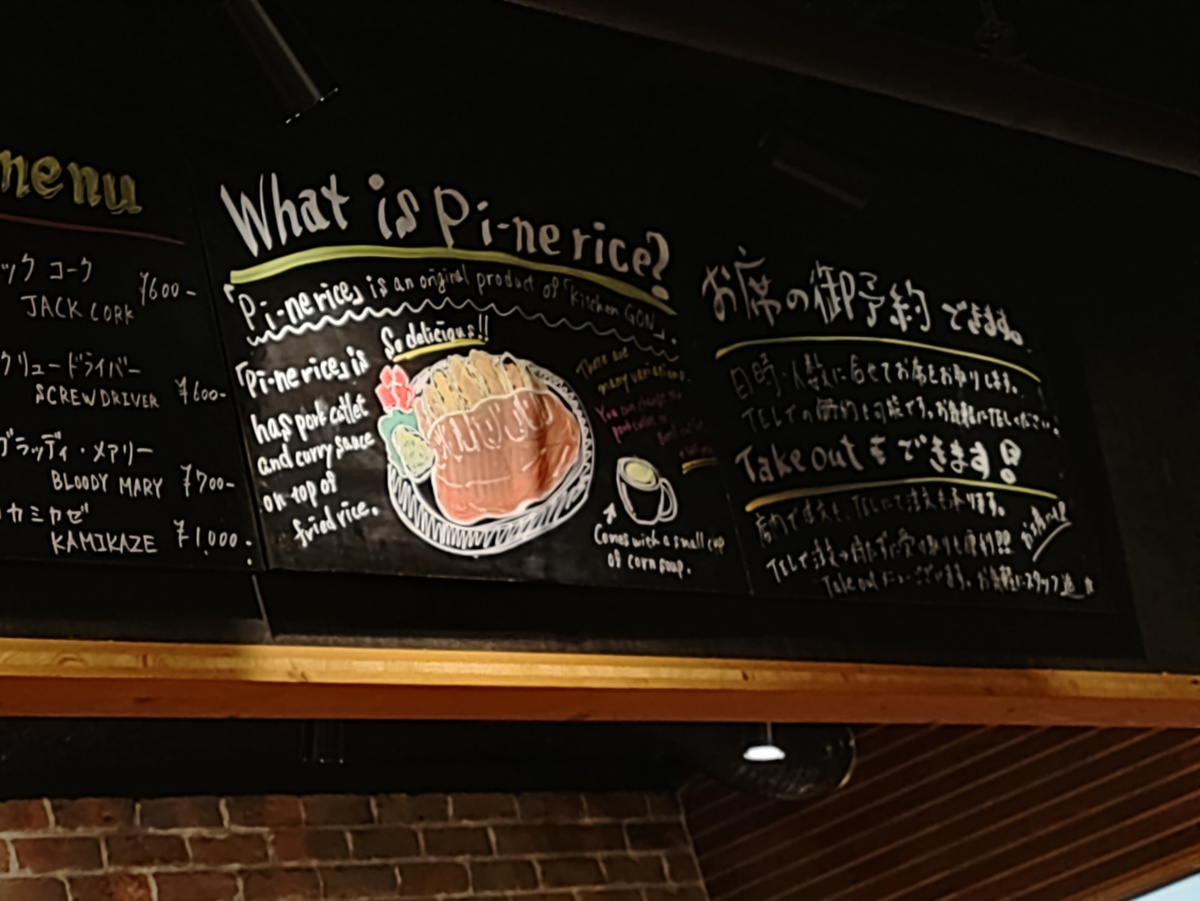 menu
ック コーク
JACK CORK ¥600-
クリュードライバー
SCREWDRIVER ¥600-
ブラッディ・メアリー
BLOODY MARY ¥700-
カミカゼ
KAMIKAZE ¥1,000-
What is Pi-ne rice?
「Pi-ne rice」 is an original product of 「Kitchen GON」.
So delicious!!
「Pi-ne rice」is
has pork catlet
and curry sauce
on top of
fried rice.
There are
many variations.
You can change the
pork cutlet
Comes with a small cup
of corn soup.
お席の御予約できます。
日時、人数に合せてお席をお取りします。
TELでの予約も可能です。お気軽にTELください。
Take outもできます!
TELで注文
Take outメニューございます。お気軽にスタッフ